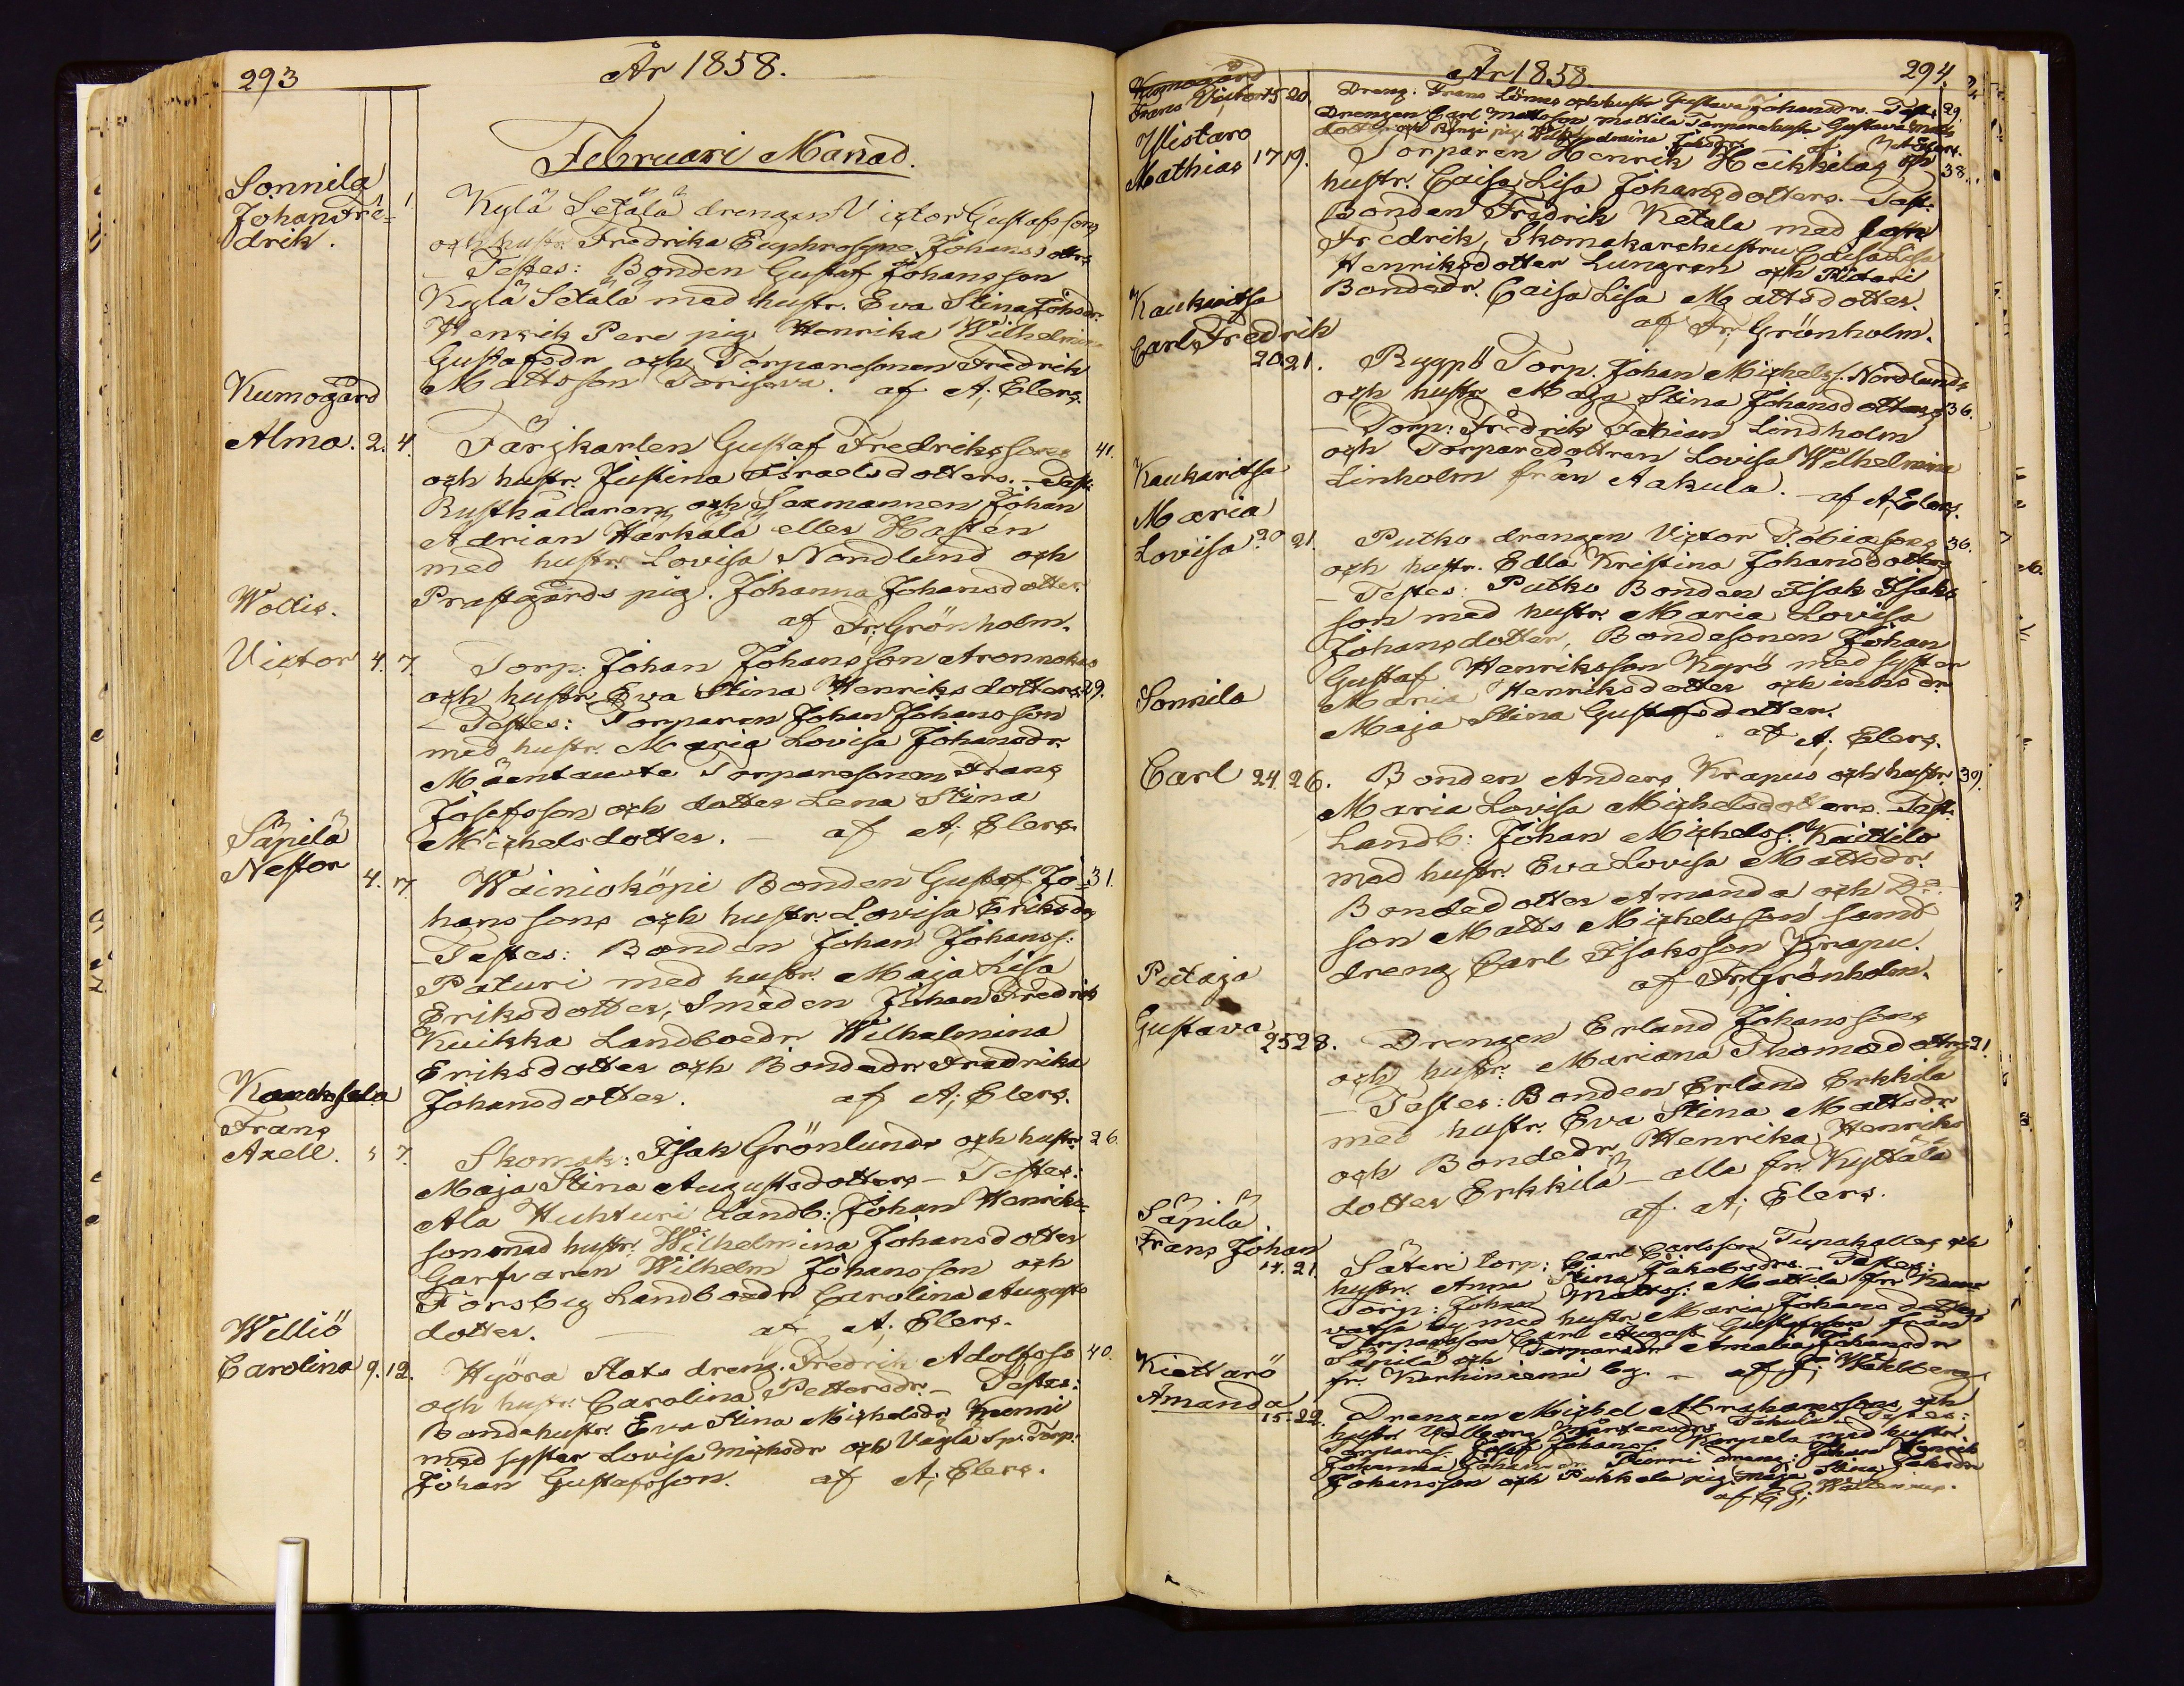 293
År 1858.
Februari Månad.
Sonnila
Johan Fre-
drik.
1.
Kylä Setälä drengen Victor Gustafssons
och hustr. Fredrika Euphrosyne Johansdotters
– Testes: Bonden Gustaf Johansson
Kylä Setälä med hustr. Eva Stina Johsdr.
Henrik Pere pig. Henrika Wilhelmina
Gustafsdr och Torparesonen Fredrik
Mattsson af A. Elers.
Kumogård
Alma. 2. 4.
Färjkarlen Gustaf Fredrikssons 41.
och hustr. Justina Israelsdotters. – Test:
Rusthållaren och Sexmannen Johan
Adrian Härkälä eller Hasten
med hustr. Lovisa Nordlund och
Prästgårds pig. Johanna Johansdotter.
af Fr. Grönholm.
Wollis.
Victor 4. 7.
Torp: Johan Johansson
och hustr. Eva Stina Henriksdotters. 29.
– Testes: Torparen Johan Johansson
med hustr. Maria Lovisa Johansdr.
Mäentausta Torparesonen Frans
Josefsson och dotter Lena Stina
Michelsdotter. – af A. Elers.
Säpilä
Nestor 4. 7.
Wainioköpi Bonden Gustaf Jo- 31.
hanssons och hustr. Lovisa Eriksdrs
– Testes: Bonden Johan Johanss:
Paturi med hustr. Maja Lisa
Eriksdotter, Smeden Johan Fredrik
Kuikka Landboedr Wilhelmina
Eriksdotter och Bondedr Fredrika
Johansdotter. af A. Elers.
Kauksala
Frans
Axell. 5 7.
Skomak: Isak Grönlunds och hustr. 26.
Maja Stina Augustsdotters – Testes:
Ala Huhturi Landb: Johan Henriks-
son med hustr. Wilhelmina Johansdotter
Garfvaren Wilhelm Johansson och
Forsby Landboedr Carolina Augusts
dotter. – af A. Elers.
Williö
Carolina 9. 12.
Hyöra Stats dreng. Fredrik Adolfsso 40.
och hustr. Carolina Pettersdr. – Testes:
Bondehustr. Eva Stina Michelsdr Kunni
med syster Lovisa Michsdr och Torp:
Johan Gustafsson. af A. Elers.
År 1858.
294.
Kumogård
Frans Victor 15 20.
Dreng: Frans och hustr Gustava Johansdrs. – Test: 29.
Drengen Carl Mattsson Mattila Torparehustr Gustava Matts
dotter och pig. af A. Elers.
Ylistaro
Mathias 17 19.
Torparen Henrik Heikkilas och 38.
hustr. Caisa Lisa Johansdotters. – Test:
Bonden Fredrik Ketala med
Fredrik, Skomakarehustrun Caisa Lisa
Henriksdotter Lungren och
Bondedr. Caisa Lisa Mattsdotter.
af Fr. Grönholm.
Kaukaritsa
Carl Fredrik
20 21.
Torp. Johan Michelss. Nordlunds
och hustr. Maja Stina Johansdotters 36.
– Torp: Fredrik Fabian Lindholm
och Torparedottren Lovisa Wilhelmina
Linholm från Aakula. – af A. Elers.
Kaukaritsa
Maria
Lovisa 20 21.
Putko drengen Victor Tobiassons 36.
och hustr. Edla Kristina Johansdotters
– Testes: Putko Bonden Isak Isaks
son med hustr. Maria Lovisa
Johansdotter, Bondesonen Johan
Gustaf Henriksson Kyrö med syster
Maria Henriksdotter och inhsdr.
Maja Stina Gustafsdotter.
af A. Elers.
Sonnila
Carl 24. 26.
Bonden Anders Krapus och hustr. 39.
Maria Lovisa Michelsdotters. Test:
Landb: Johan Michelss: Kaittila
med hustr. Eva Lovisa Mattsdr.
Bondedotter Amanda och Do
son Matts Michelsson samt
dreng Carl Isaksson Krapu.
af Fr. Grönholm.
Piitaja
Gustava 25 28.
Drengen Erland Johanssons
och hustr. Mariana Thomædotters 21.
– Testes: Bonden Erland Erkkila
med hustr. Eva Stina Mattsdr
och Bondedr. Henrika Henriks
dotter Erkkilä – alla fr. Kyttälä
af A. Elers.
Säpilä
Frans Johan
14. 21.
Säteri torp: Carl Carlsson och
hustr. Anna Stina Jakobsdrs. – Testes:
Torp: Johan Mattss: Mattila fr.
by med hustr. Maria Johansdotter
Torpareson Carl August Gustafsson från
Säpilä och Torparedr Amalia Johansdr
fr. Karhiniemi by. – af Wahlberg.
Kiettarö
Amanda
15. 22.
Drengen Michel Abrahamssons och
hustr. Testes:
Johanss: Karpela med hustr.
Johanna Johansdr. dreng: Johan Henrik
Johansson och Pukkala pig: Maja Stina
af